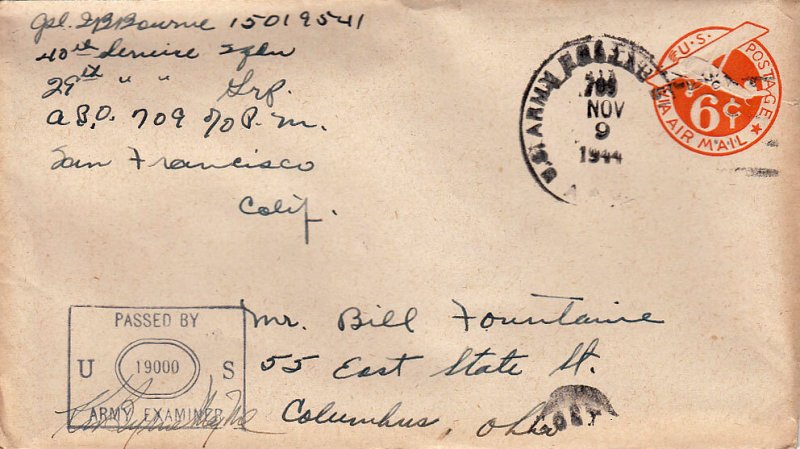 Cpl. G B Bourne 15019541
40th Service Sqdn
29th " " Grp.
A.P.O. 709 c/o P.M.
San Francisco
Calif.
U.S. ARMY
709
NOV
9
1944
U.S. POSTAGE
6¢
VIA AIR MAIL
PASSED BY
U 19000 S
ARMY EXAMINER
Mr. Bill Fountaine
55 East State St.
Columbus, Ohio